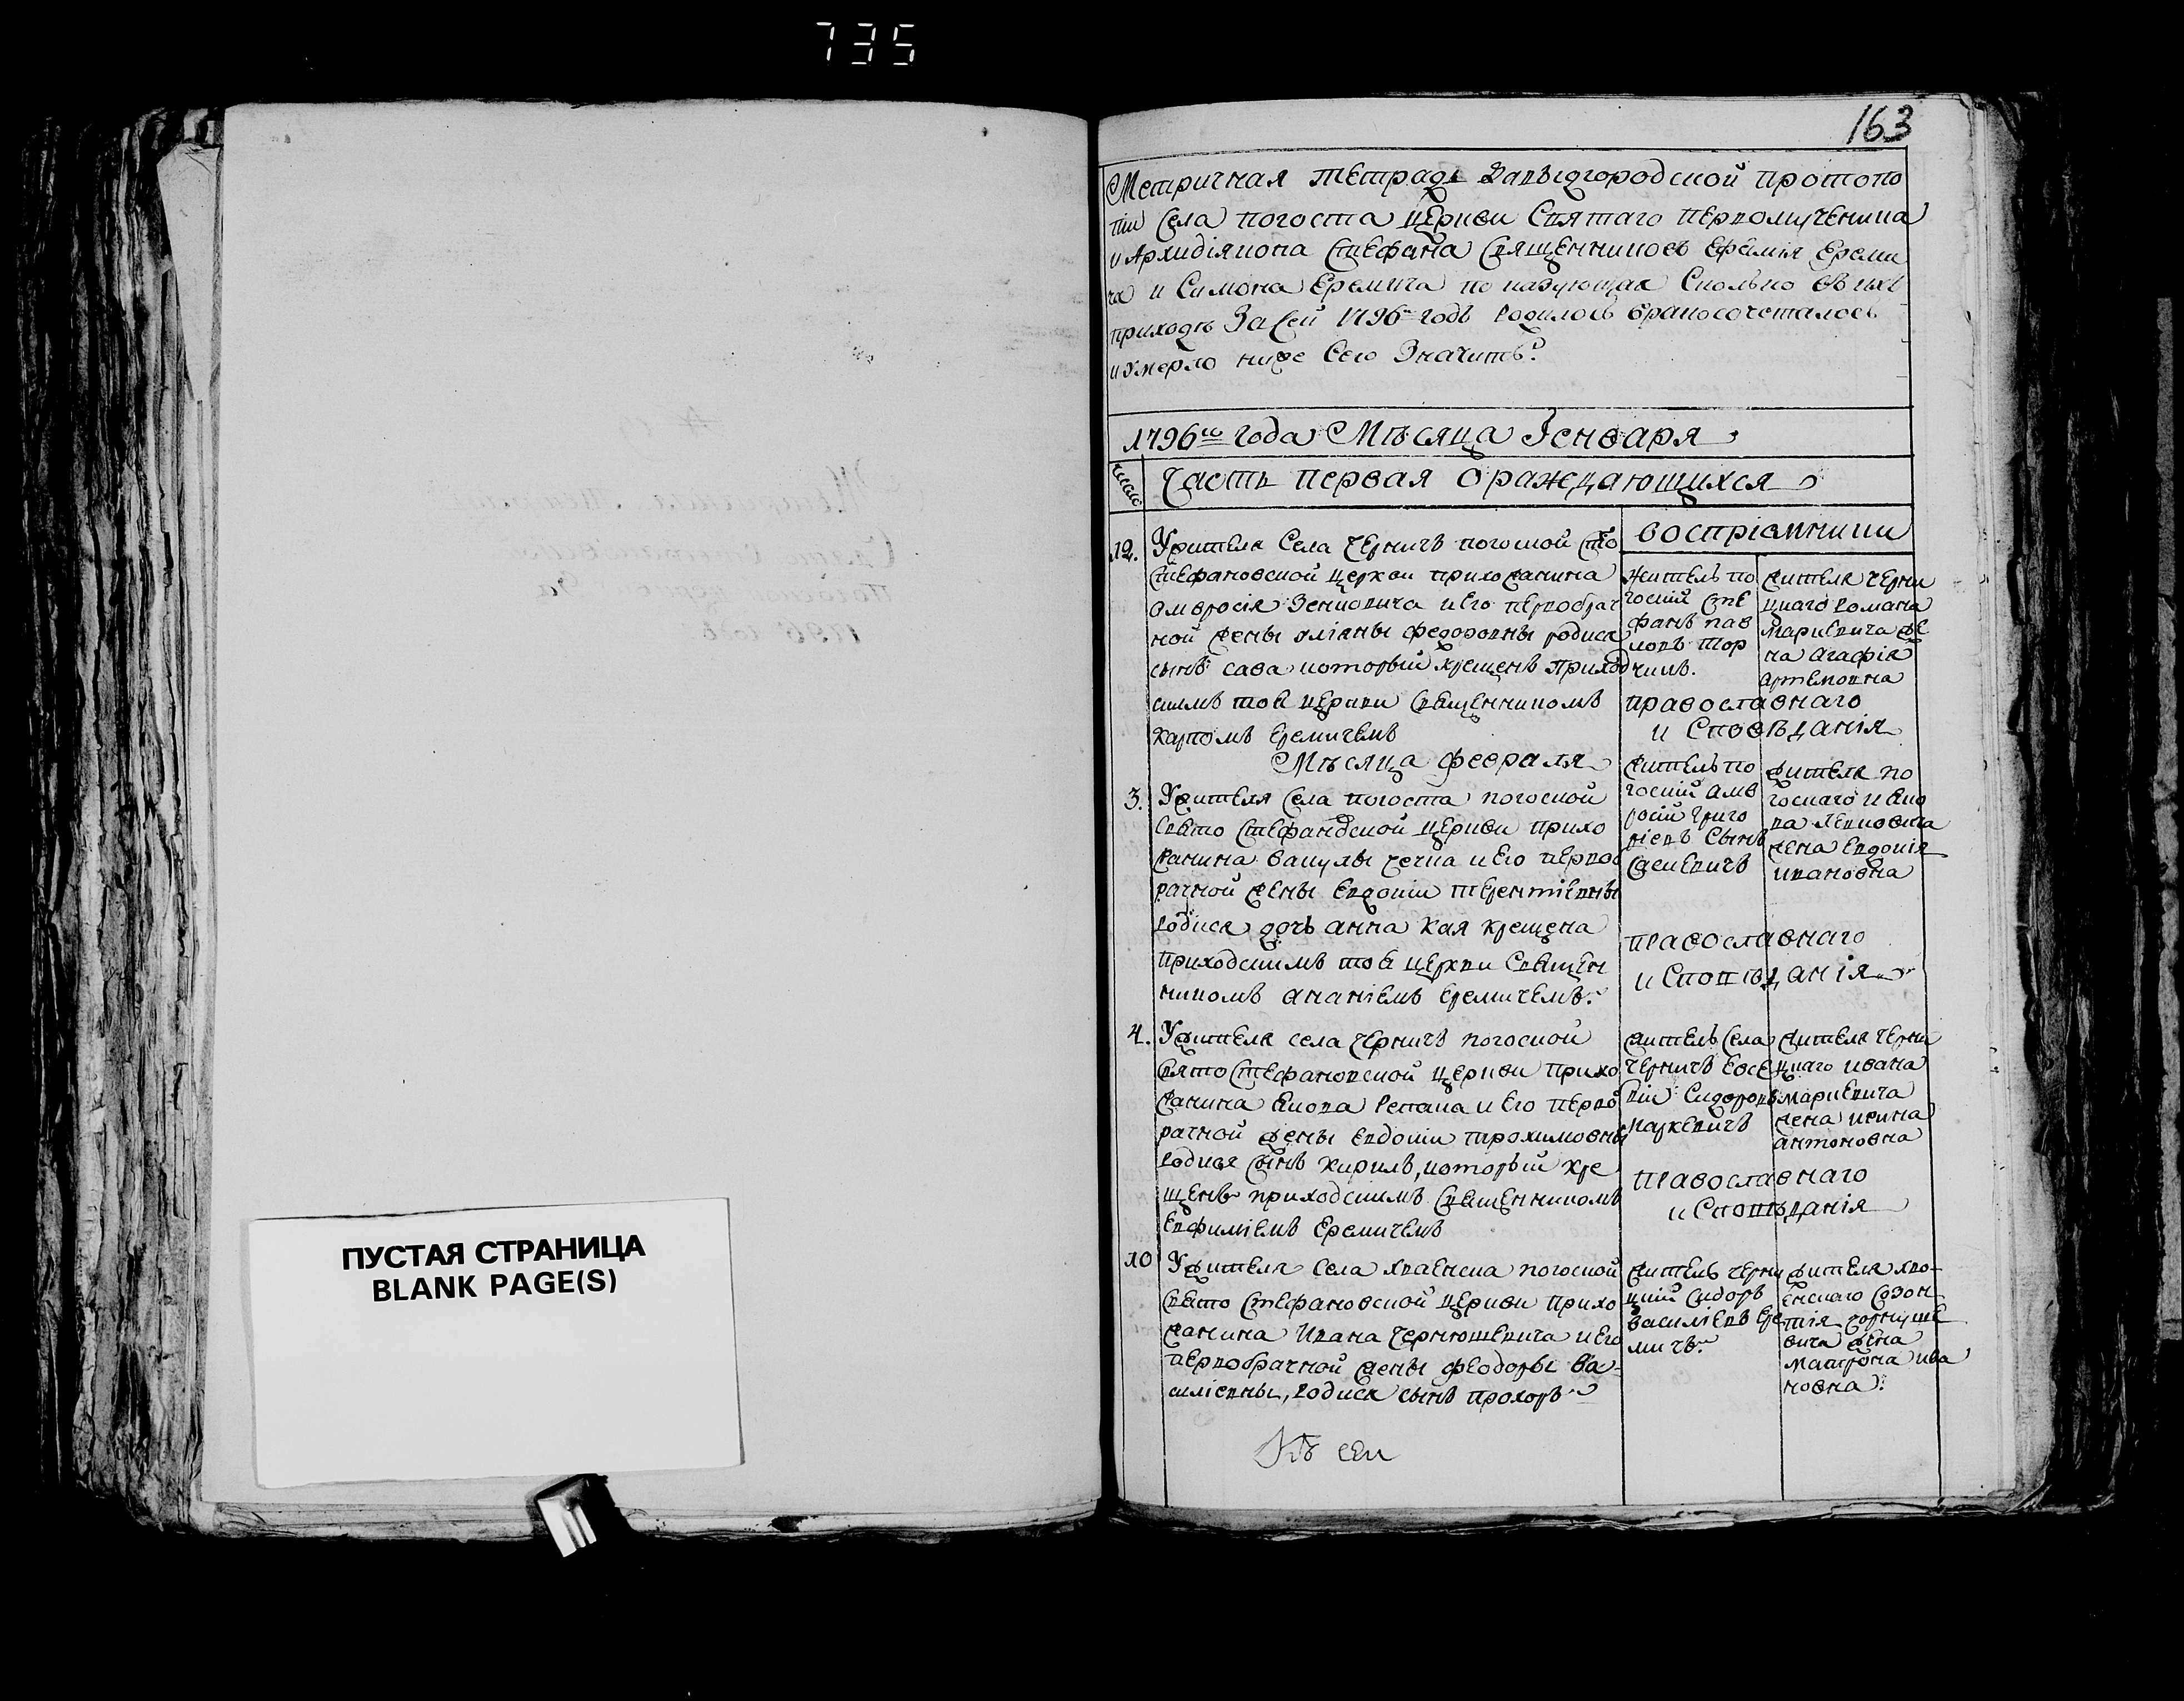 735
163
Метричная тетрадь Давыдгородской протопо
пiи Села погоста церкви Святаго первомученика
и Архидiякона Стефана Священниковъ Ефимiя Ереми
ча и Симона Еремича показующая Сколько въ ихъ
приходѣ За Сей 1796й годъ родилось бракосочеталось
и умерло ниже Сего Значитъ.
1796го года Мѣсяца Iенваря
число
Часть первая о раждающихся
воспрiемники
12. Ужителя Села Черничъ погоской Свято
Стефановской церкви прихожанина
амвросiя Зенковича и Его первобрач
ной жены улiяны федоровны родися
сынъ сава который хрещенъ приход
скимъ тоя церкви Священникомъ
Карпомъ Еремичемъ
житель по
госкiй Сте
фанъ пав
ловъ тор
чикъ.
жителя черни
цкаго романа
маркевича же
на агафiя
артемовна
православнаго
и Сповѣданiя
Мѣсяца февраля
3. Ужителя Села погоста погоской
Свято Стефановской церкви прихо
жанина вакулы чечка и Его первоб
рачной жены Евдокiи терентiевны
родися дочъ анна Кая крещена
приходскимъ тоя церкви Священ
никомъ ананiемъ Еремичемъ.
житель по
госкiй амв
росiй григо
рiевъ Сынъ
жителя по
госкаго якo
ва левковича
жена Евдокiя
ивановна
православнаго
и Сповѣданiя
4. Ужителя села черничъ погоской
Свято Стефановской церкви прихо
жанина якова репаха и Его первоб
рачной жены Евдокiи трохимовны
родися сынъ кирилъ, который хре
щенъ приходскимъ Священникомъ
Евфимiемъ Еремичемъ
житель Села
черничъ Евсе
вiй Сидоровъ
маркевичъ
жителя черни
цкаго ивана
маркевича
жена ирина
антоновна
православнаго
и Сповѣданiя
10 Ужителя Села хвaенска погоской
Свято Стефановской церкви прихо
жанина Ивана Чернюшевича и Его
первобрачной жены феодоры ва-
силiевны, родися сынъ прохоръ
житель черни
цкiй Сидоръ
василiевъ Ере
мичъ.
жителя хво-
енскаго Созон
тiя чорнуше
вича жена
матрона ива
новна.
Къ сей
ПУСТАЯ СТРАНИЦА
BLANK PAGE(S)